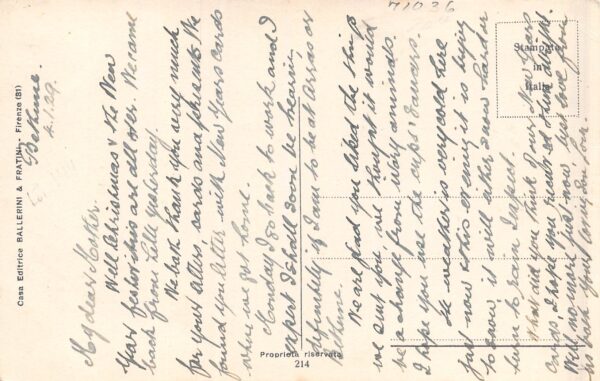 71036
Stampato
in
Italia
Casa Editrice BALLERINI & FRATINI - Firenze (81)
Proprietà riservata
214
Bethune.
4.1.29.
My dear Mother.
Well Christmas & the New
Year festivities are all over. We came
back from Lille yesterday.
We both thank you very much
for your letter, cards and presents. We
found your letter with New Years cards
when we got home.
Monday I go back to work and I
expect I shall soon be hearing
definitely if I am to be at Arras or
Bethune.
We are glad you liked the things
we sent you, we thought it would
be a change from
I hope you use the cups & saucers.
The weather is very cold here
just now & this evening it is trying
to snow, it will either snow harder or
turn to rain I expect.
What did you think of our New Years
cards, I hope you received them alright.
Well no more just now, best love from
us both. Your loving son